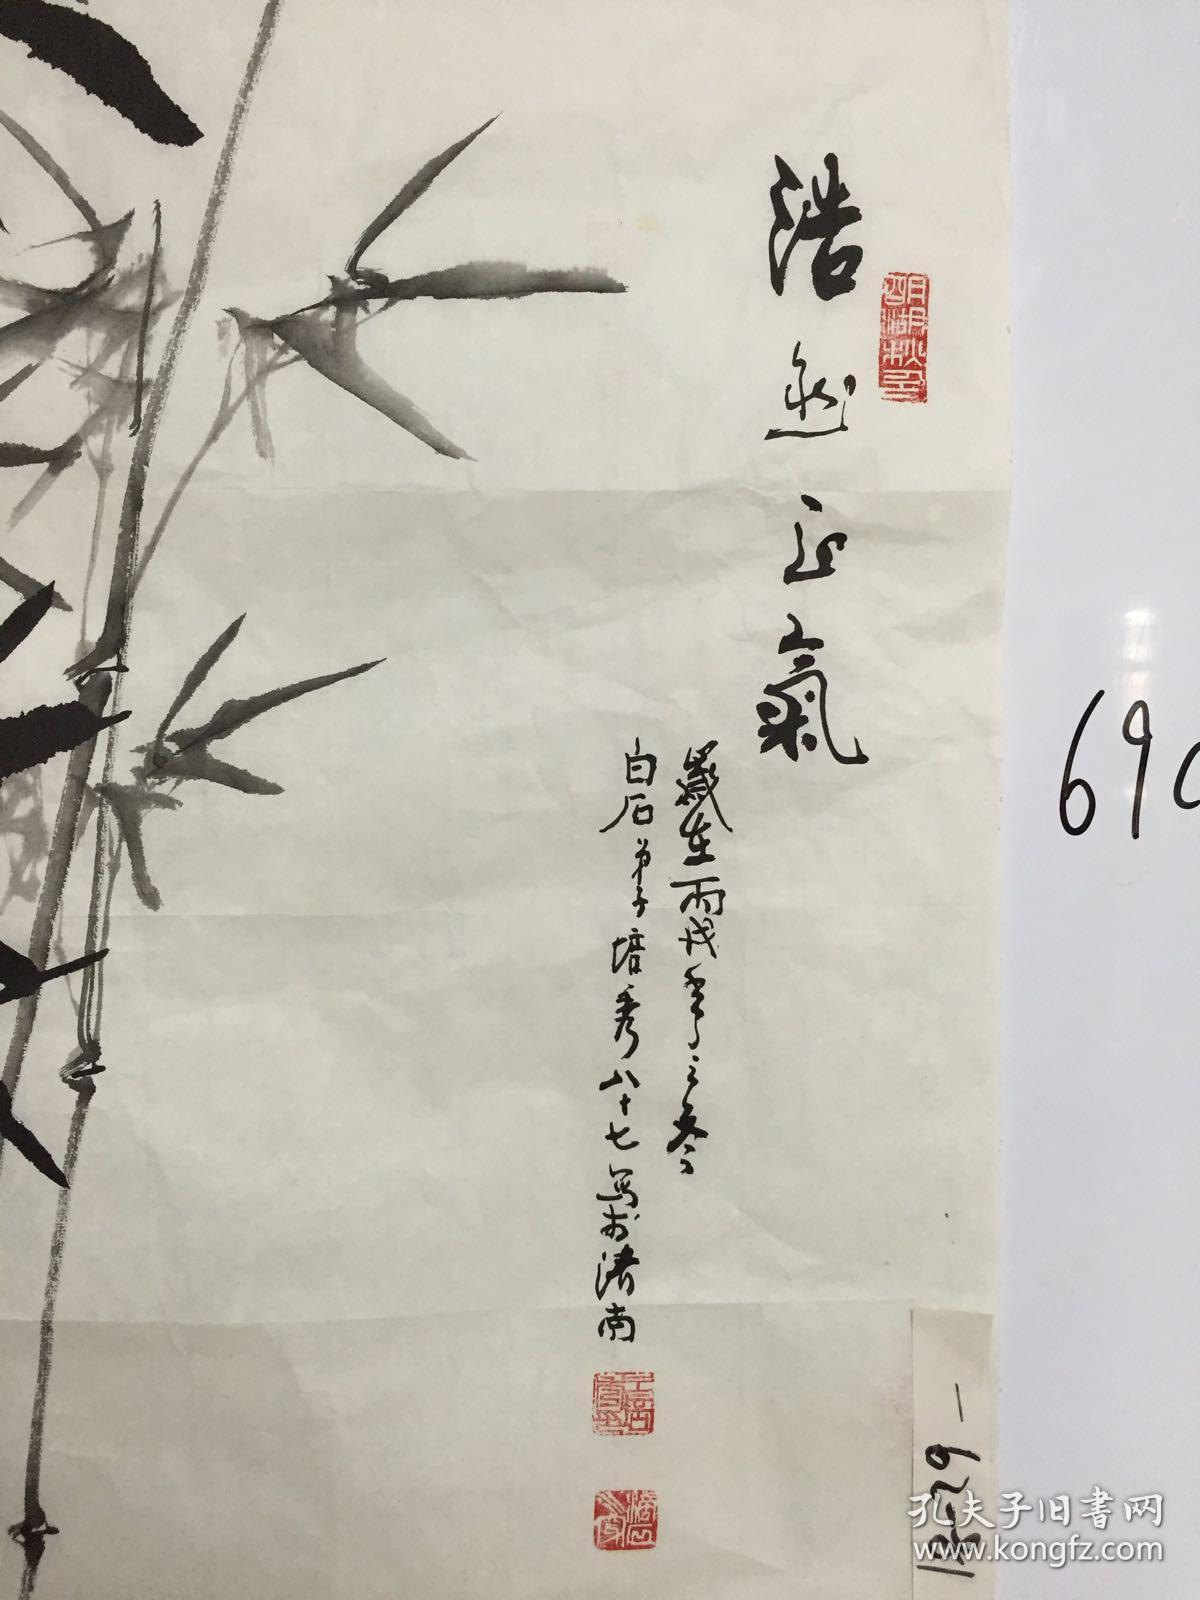 浩然正氣
歲在丙戌季之冬
白石弟子培秀八十七寫於濟南
69
13-29-
孔夫子旧书网
www.kongfz.com